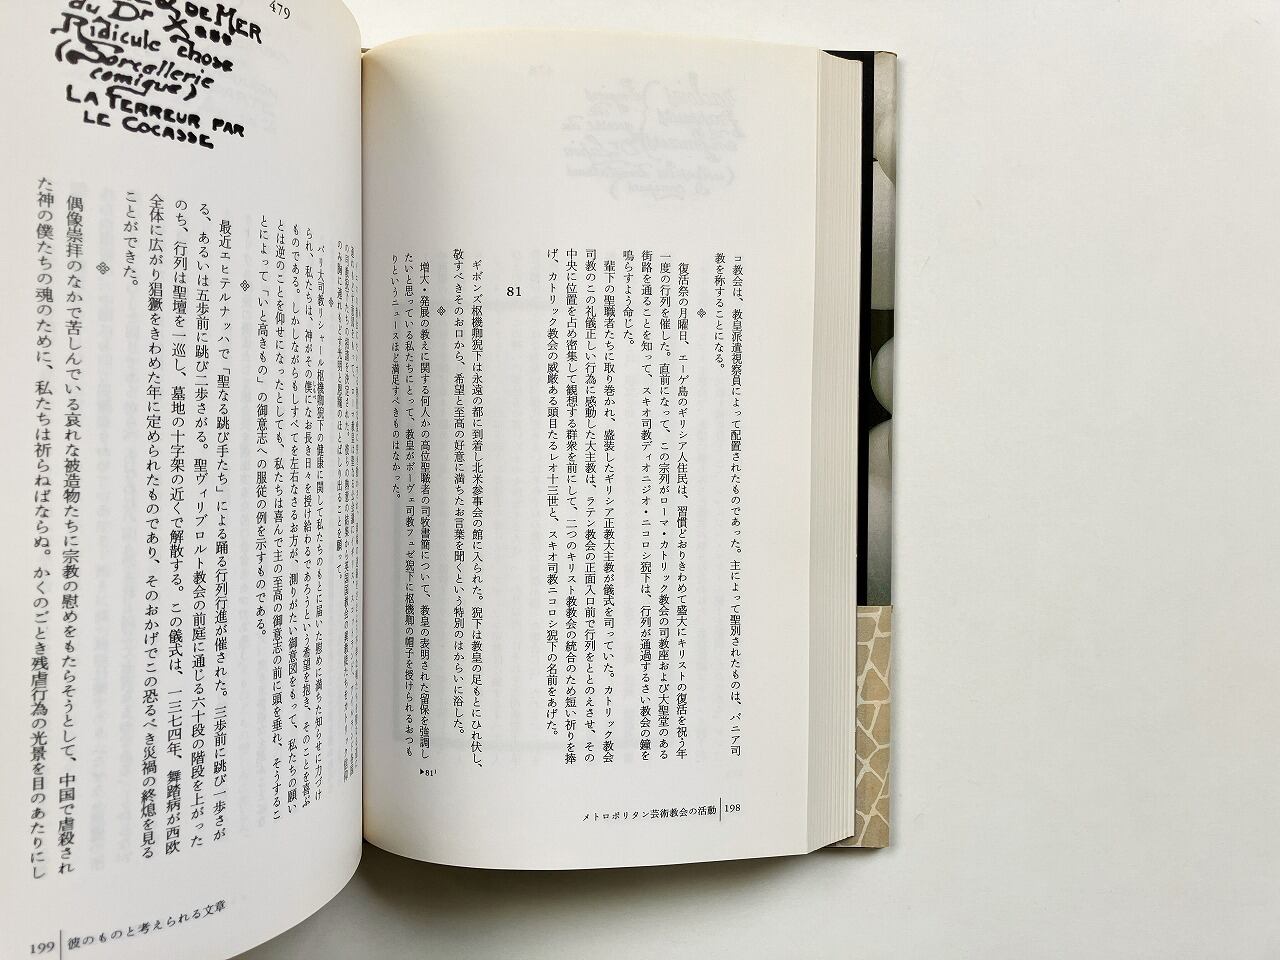 コ教会は、教皇派遣視察員によって配置されたものであった。主によって聖別されたものは、パニア司
教を称することになる。
復活祭の月曜日、エーゲ島のギリシア人住民は、習慣どおりきわめて盛大にキリストの復活を祝う年
一度の行列を催した。直前になって、この宗列がローマ・カトリック教会の司教座および大聖堂のある
街路を通ることを知って、スキオ司教ディオニジオ・ニコロシ猊下は、行列が通過するさい教会の鐘を
鳴らすよう命じた。
輩下の聖職者たちに取り巻かれ、盛装したギリシア正教大主教が儀式を司っていた。カトリック教会
司教のこの礼儀正しい行為に感動した大主教は、ラテン教会の正面入口前で行列をととのえさせ、その
中央に位置を占め密集して観想する群衆を前にして、二つのキリスト教教会の統合のため短い祈りを捧
げ、カトリック教会の威厳ある頭目たるレオ十三世と、スキオ司教ニコロシ猊下の名前をあげた。
81
ギボンズ枢機卿猊下は永遠の都に到着し北米参事会の館に入られた。猊下は教皇の足もとにひれ伏し、
敬すべきそのお口から、希望と至高の好意に満ちたお言葉を聞くという特別のはからいに浴した。
増大・発展の教えに関する何人かの高位聖職者の司牧書簡について、教皇の表明された留保を強調し
たいと思っている私たちにとって、教皇がボーヴェ司教フュゼ猊下に枢機卿の帽子を授けられるおつも
りというニュースほど満足すべきものはなかった。
▶81)
メトロポリタン芸術教会の活動 198
479
DE MER
du Dr X•••
Ridicule chose
(Sorcellerie
comique)
LA TERREUR PAR
LE COCASSE
パリ大司教リシャール枢機卿猊下の健康に関して私たちのもとに届いた慰めに満ちた知らせに力づけ
られ、私たちは、神がその僕になお長き日々を授け給わるであろうという希望を抱き、そのことを喜ぶ
ものである。しかしながらもしすべてを左右なさるお方が、測りがたい御意図をもって、私たちの願い
とは逆のことを仰せになったとしても、私たちは喜んで主の至高の御意志の前に頭を垂れ、そうするこ
とによって「いと高きもの」の御意志への服従の例を示すものである。
最近エヒテルナッハで「聖なる跳び手たち」による踊る行列行進が催された。三歩前に跳び一歩さが
る、あるいは五歩前に跳び二歩さがる。聖ヴィリブロルト教会の前庭に通じる六十段の階段を上がった
のち、行列は聖壇を一巡し、墓地の十字架の近くで解散する。この儀式は、一三七四年、舞踏病が西欧
全体に広がり猖獗をきわめた年に定められたものであり、そのおかげでこの恐るべき災禍の終熄を見る
ことができた。
偶像崇拝のなかで苦しんでいる哀れな被造物たちに宗教の慰めをもたらそうとして、中国で虐殺され
た神の僕たちの魂のために、私たちは祈らねばならぬ。かくのごとき残虐行為の光景を目のあたりにし
199 彼のものと考えられる文章